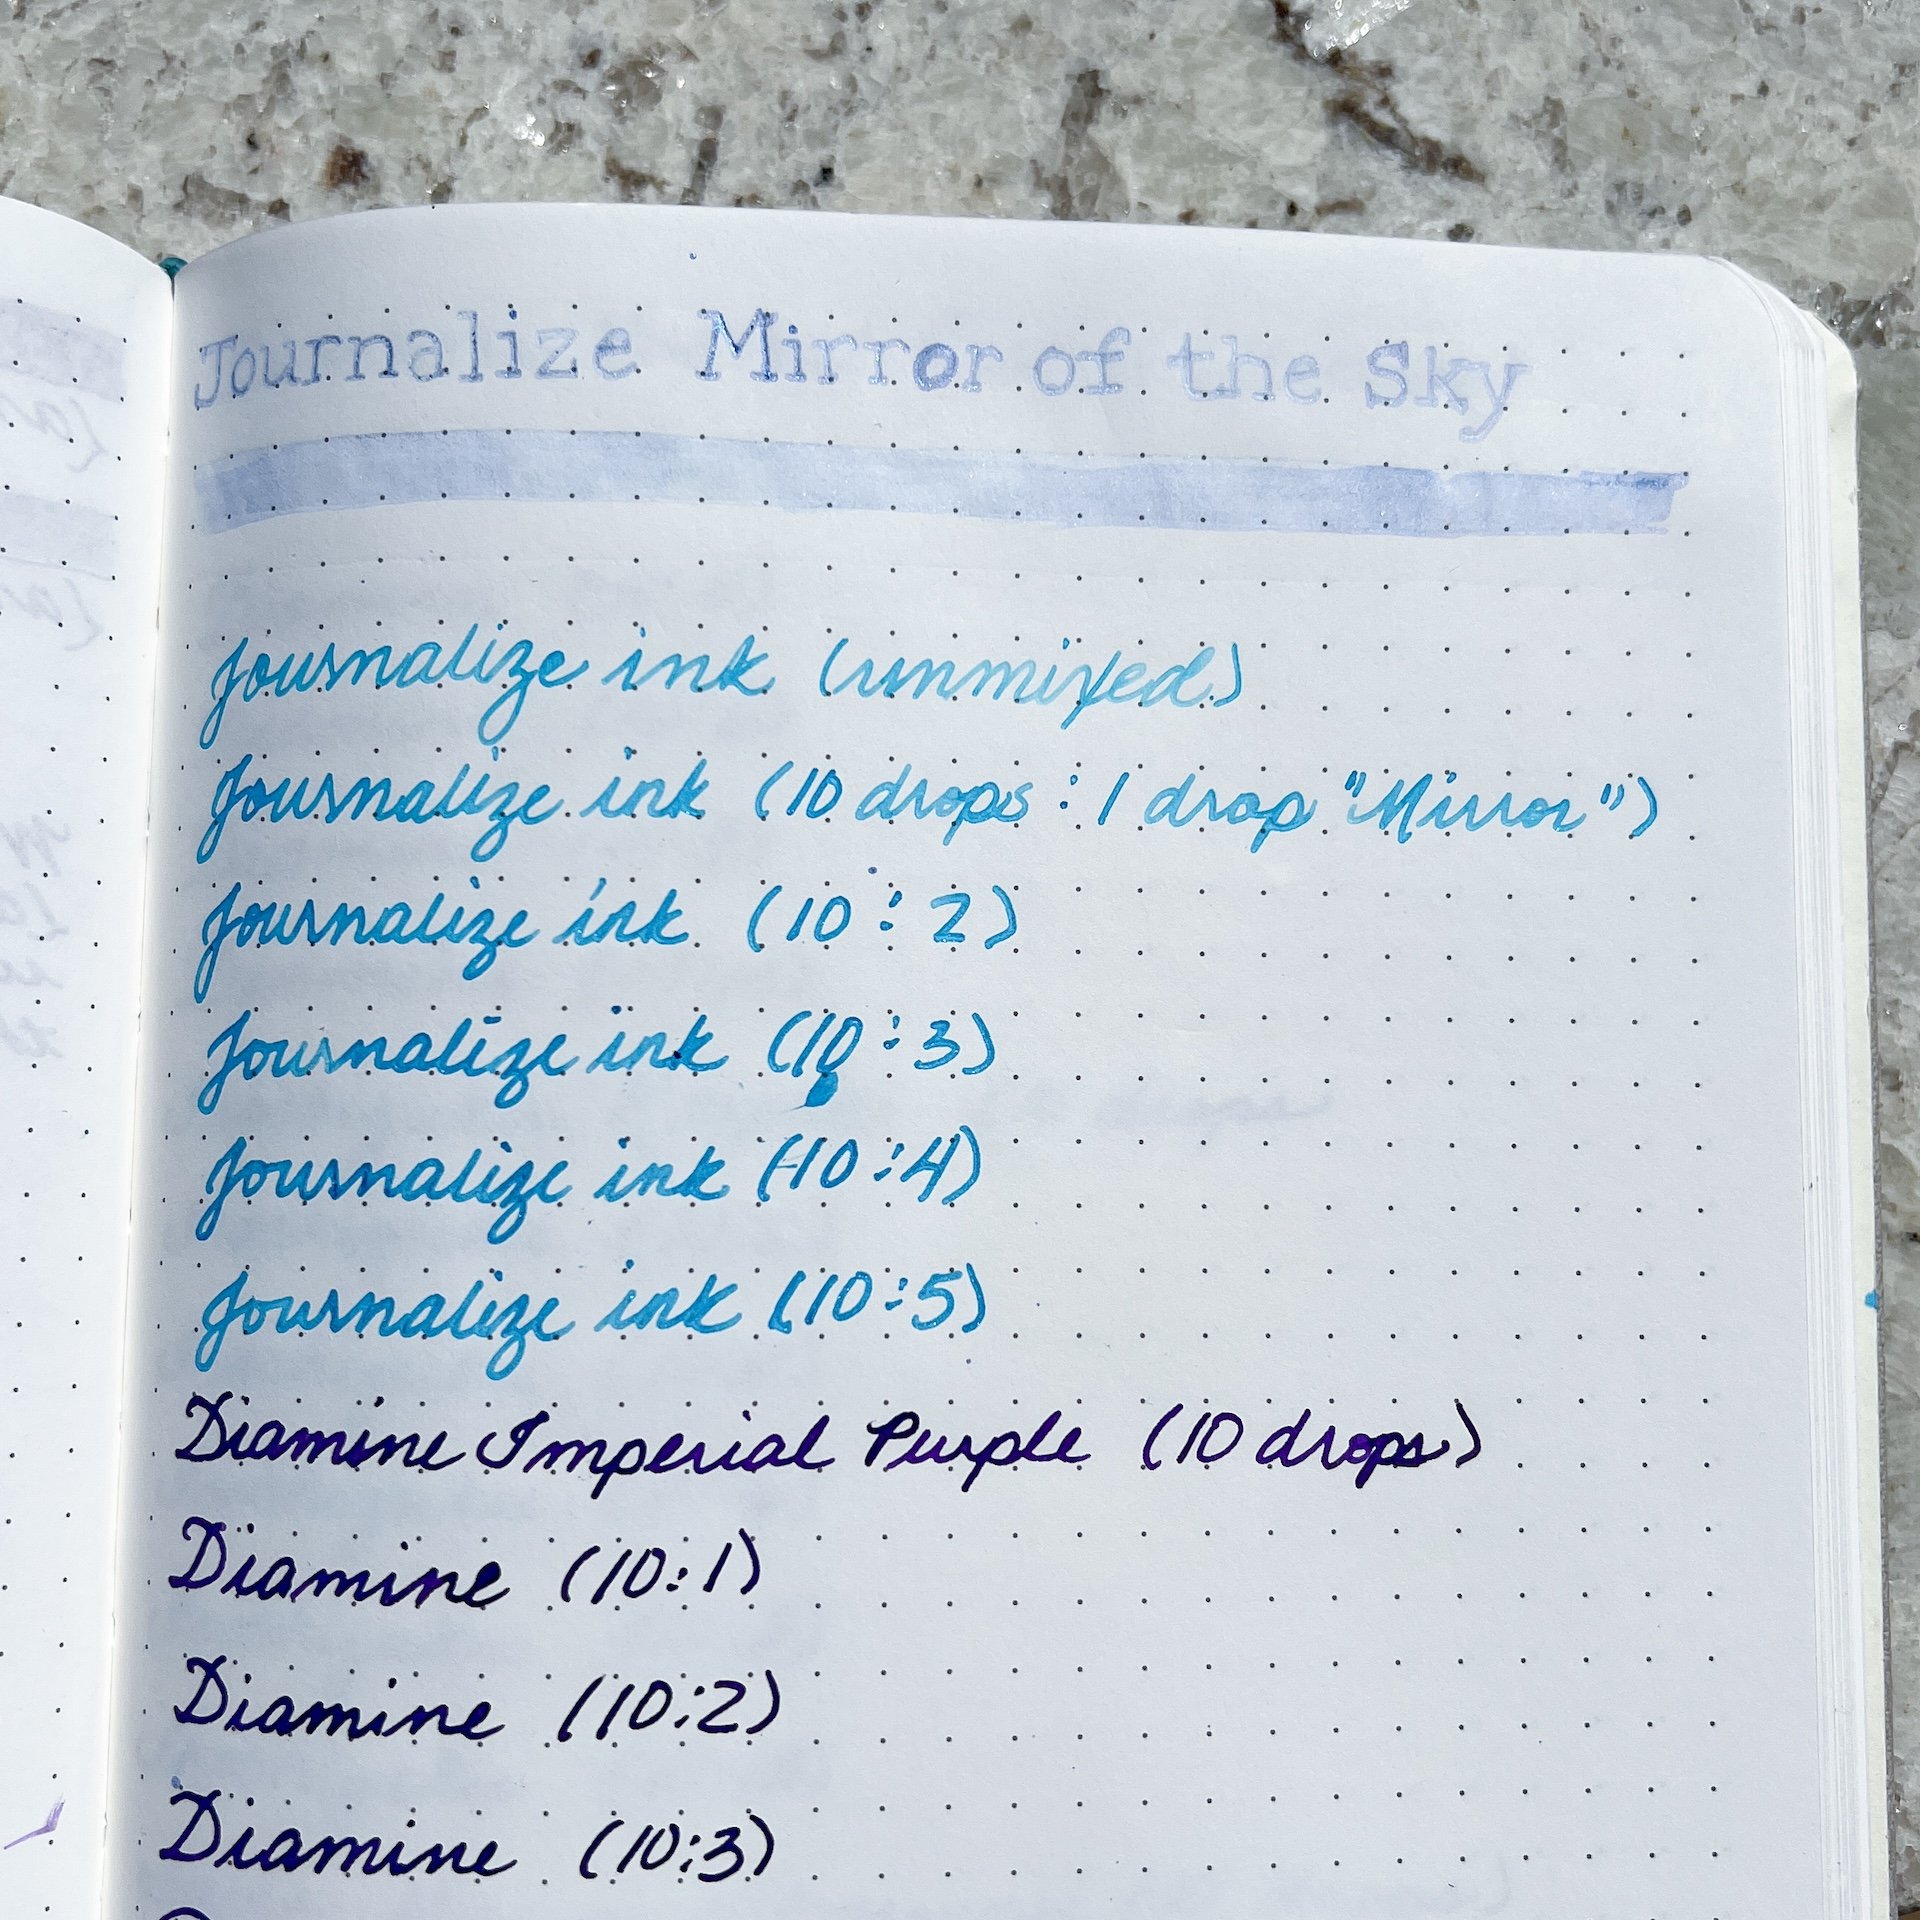 Journalize Mirror of the Sky
Journalize ink (unmixed)
Journalize ink (10 drops : 1 drop "Mirror")
Journalize ink (10 : 2)
Journalize ink (10 : 3)
Journalize ink (10 : 4)
Journalize ink (10 : 5)
Diamine Imperial Purple (10 drops)
Diamine (10:1)
Diamine (10:2)
Diamine (10:3)